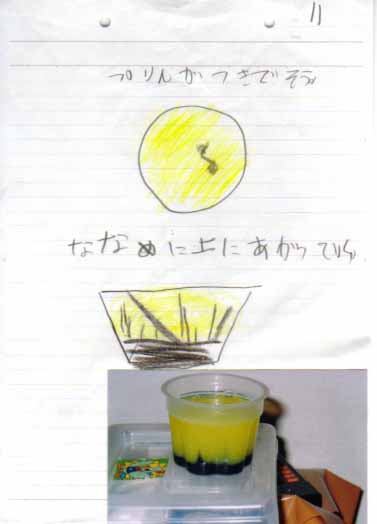 11
プリんがつきでそう
ななめに上にあがっている